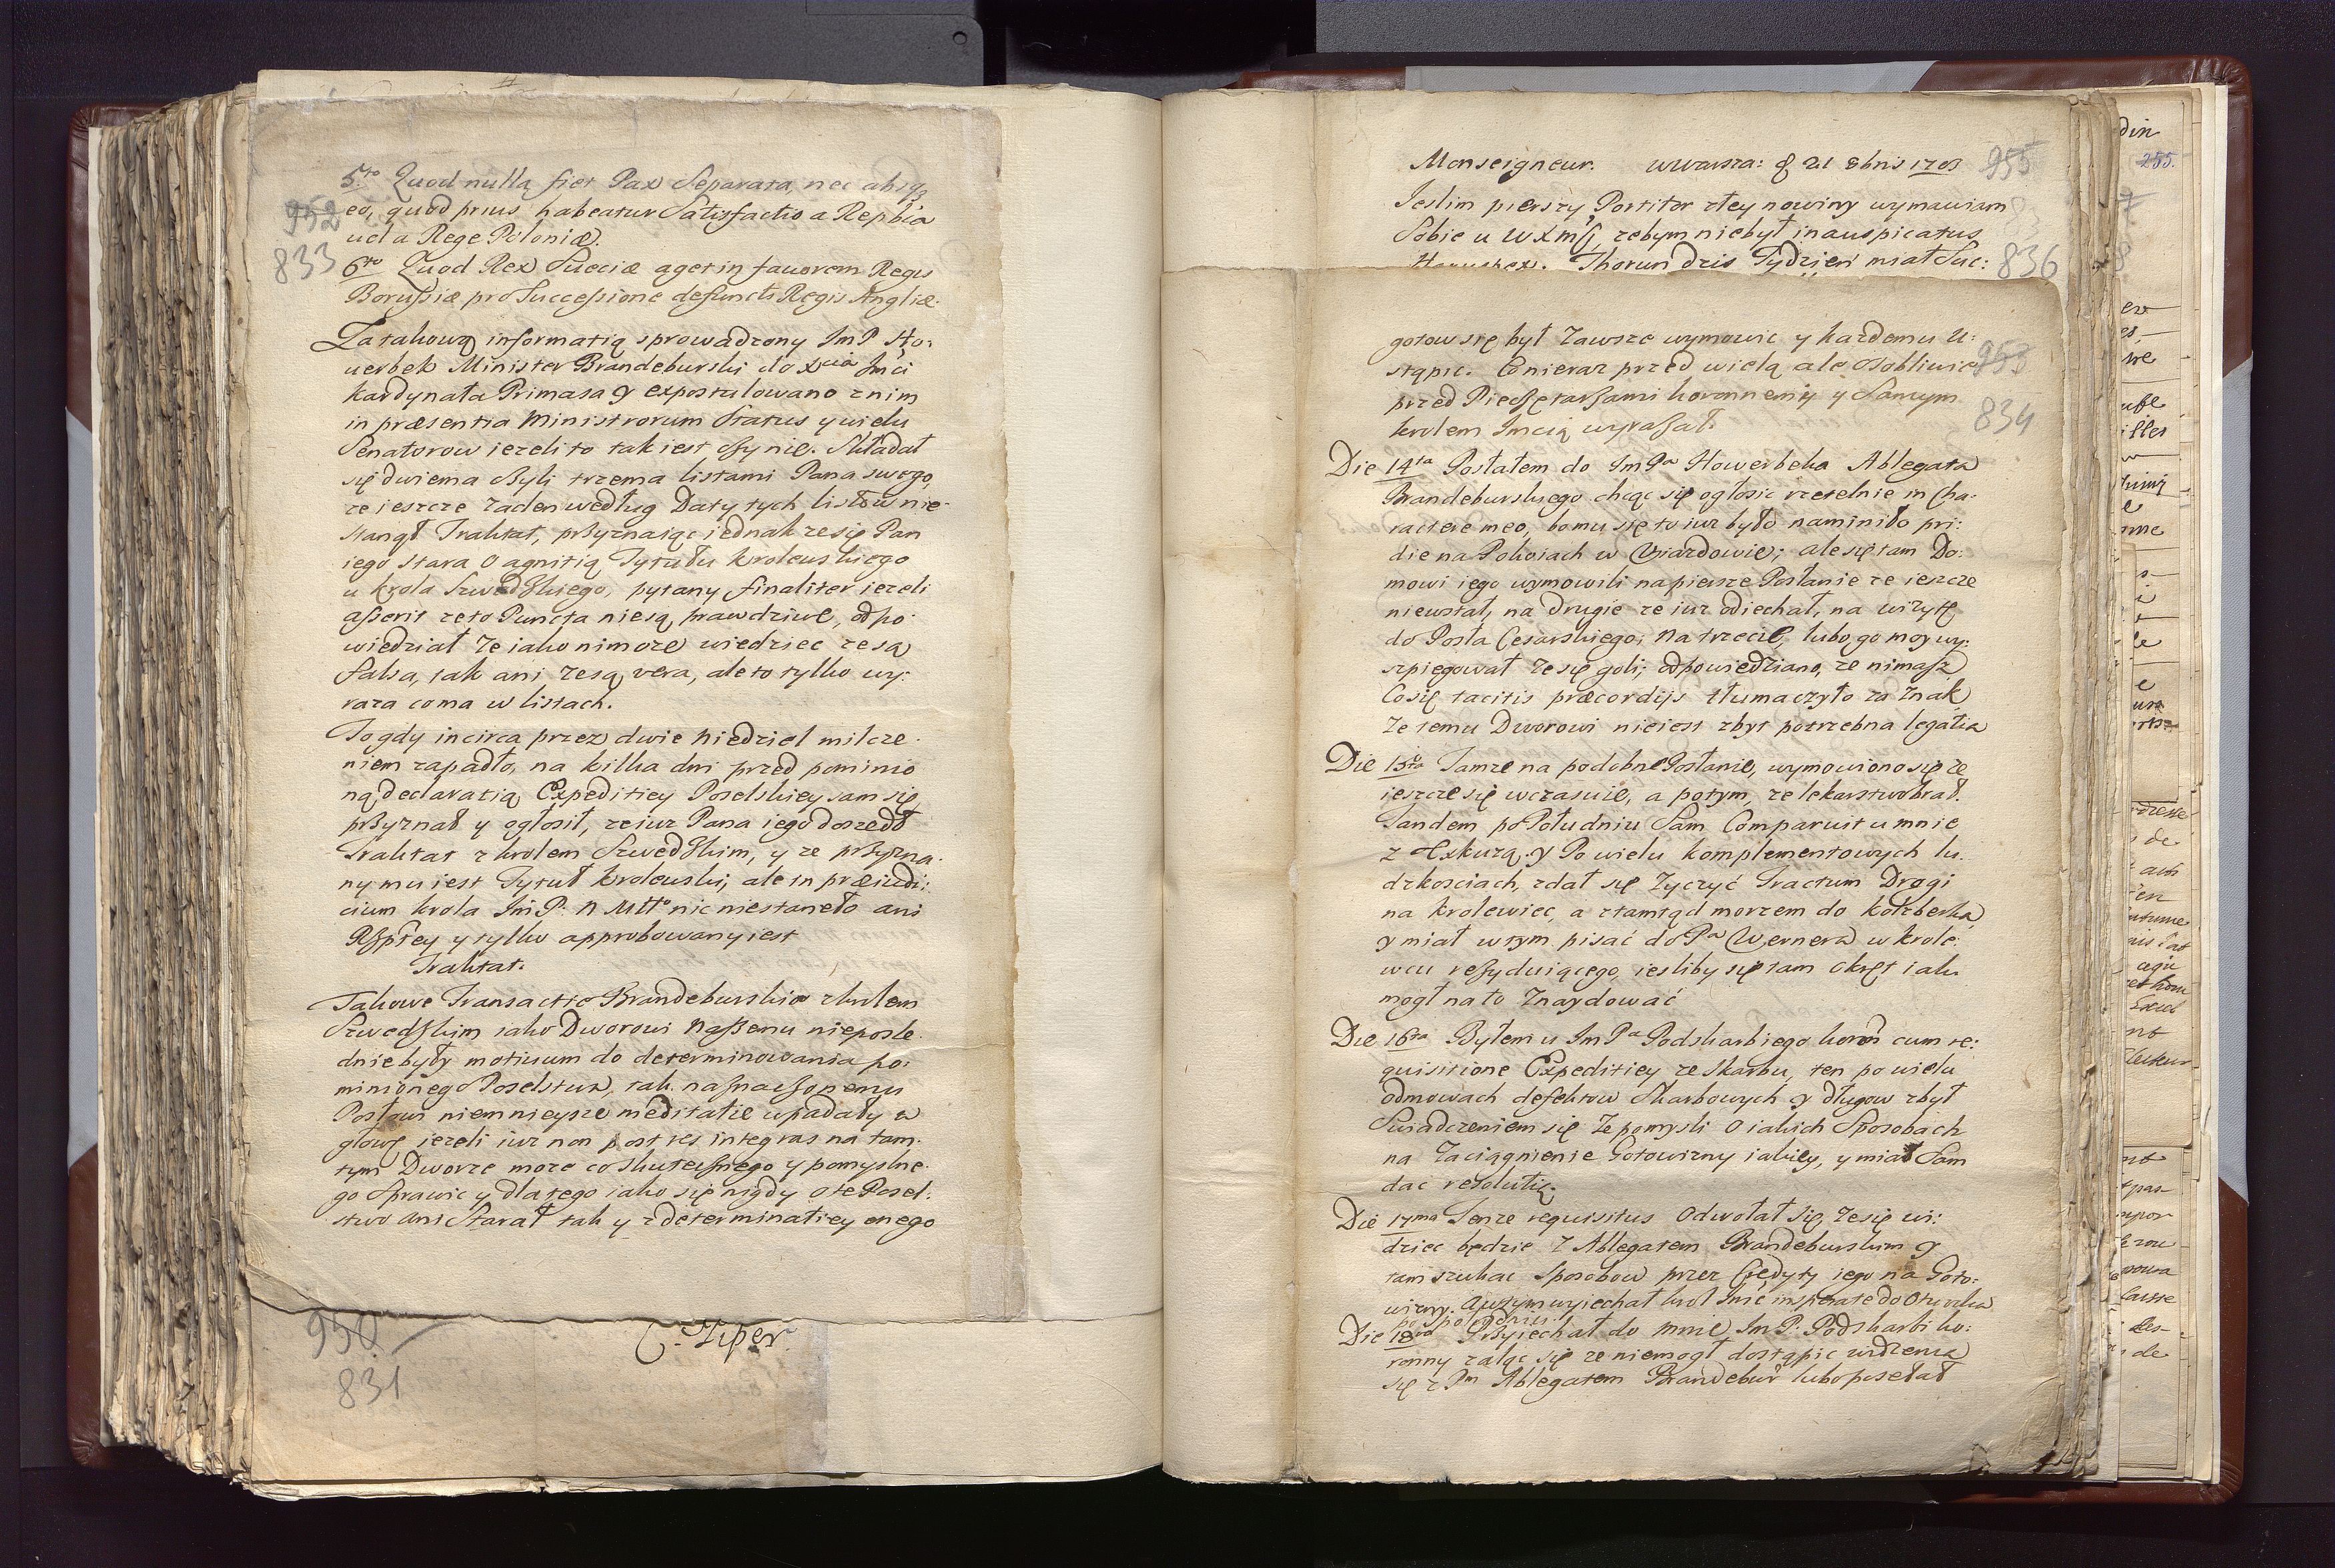 5to Quod nulla fiet Pax Separata, nec absq3
eo, quod prius habeatur Satisfactio a Repbca
vel a Rege Poloniæ.
6to Quod Rex Sueciæ aget in fauorem Regis
Borussiæ pro Successione defuncti Regis Angliæ.
952
833
Za takową informatią sprowadzony ImP Ho:
uerbek Minister Brandeburski do Xcia Jmci
kardynała Primasa y expostulowano z nim
in præsentia Ministrorum Status y wielu
Senatorow iezeli to tak iest czy nie. Składał
się dwiema czyli trzema listami Pana swego,
ze ieszcze zaden według Daty tych listow nie
stanął Traktat, przyznaiąc iednak ze się Pan
iego stara o agnitią Tytułu krolewskiego
u krola Szwedzkiego, pytany finaliter iezeli
asserit ze to Puncta nie są prawdziwe, odpo:
wiedział ze iako nimoze wiedziec ze są
falsa, tak ani ze są vera, ale to tylko wy:
raza co ma w listach.
To gdy in circa przez dwie niedziel milcze:
niem zapadło, na kilka dni przed pominio
ną declaratią Expeditiey Poselskiey sam się
przyznał y ogłosił, ze iuz Pana iego doszedł
Traktat z krolem Szwedzkim, y ze przyzna:
ny mu iest Tytuł krolewski, ale in præiudi:
cium krola Jm P. N Mtto nic niestaneło ani
Rzptey y tylko approbowany iest
Traktat.
Takowe Transactie Brandeburskie z krolem
Szwedzkim iako Dworowi naszemu niepośle:
dnie były motivum do determinowania po:
minionego Poselstwa, tak naznaczonemu
Posłowi niemnieysze meditatie wpadały w
głowę iezeli iuz non post res integras na tam:
tym Dworze moze co skutecznego y pomyslne:
go sprawic y dlatego iako się nigdy o te Posel:
stwo ani starał tak y z determinatiey onego
950
831
C. Piper.
Monseigneur. w Warsza: d 21 8bris 1703
955
Jeslim pierszy Portitor złey nowiny wymawiam
Sobie u WXMsci, zebym niebył inauspicatus
Haruspex. Thorun dzis Tydzień miał Suc:
836
gotow się był zawsze wymowic y kazdemu u:
stąpic. Co nieraz przed wielą ale osobliwie
przed Pieczętarzami koronnemi y samym
krolem Jmcią wyrazał.
953
834
Die 14ta Posłałem do ImPa Howerbeka Ablegata
Brandeburskiego chcąc się ogłosic rzetelnie in Cha:
ractere meo, bo mu się to iuz było namieniło pri:
die na Pokoiach w Viazdowie; ale się tam Do:
mowi iego wymowili na piersze Posłanie ze ieszcze
niewstał, na drugie ze iuz odiechał, na wizytę
do Posła Cesarskiego; na trzecie, lubo go moy wy:
szpiegował ze się goli; odpowiedziano, ze nimasz
Co się tacitis præcordijs tłumaczyło za znak
ze temu Dworowi nieiest zbyt potrzebna legatia
Die 15ta Tamze na podobne Posłanie, wymowiono się ze
ieszcze się wczasuie, a potym, ze lekarstwo brał.
Tandem po Południu Sam Comparuit u mnie
z Exkuzą y Po wielu komplementowych lu:
dzkosciach, zdał się zyczyć Tractum Drogi
na krolewiec, a ztamtąd morzem do Kolzberka
y miał w tym pisać do Pa Wernera w krole:
wcu rezyduiącego, iesliby się tam okręt iaki
mogł na to znaydować
Die 16ta Byłem u ImPa Podskarbiego koron cum re:
quisitione Expeditiey ze Skarbu, ten po wielu
odmowach defektow skarbowych y długow zbył
Swiadczeniem się ze pomysli o iakich Sposobach
na zaciągnienie Gotowizny iakiey, y miał Sam
dac resolutią.
Die 17ma Tenze requisitus odwołał się, ze się wi:
dziec będzie z Ablegatem Brandeburskim y
tam szukac sposobow przez Credyty iego na Goto:
wizny. A w tym wyiechał krol Jmc insperate do Otwocka
po społudniu.
Die 18va Przyiechał do mnie Im P. Podskarbi ko:
ronny zaląc się ze niemogł dostąpic widzenia
się z Pm Ablegatem Brandebur lubo posełał